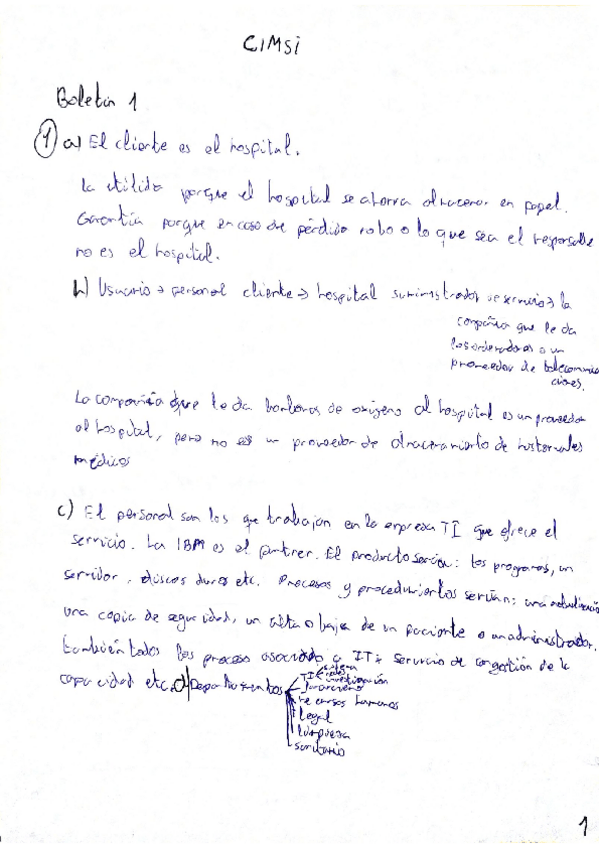 CIMSI
Boletín 1
1 a) El cliente es el hospital.
La utilida porque el hospital se ahorra almacenar en papel.
Garantía porque en caso de pérdida robo o lo que sea el responsable
no es el hospital.
b) Usuario → personal cliente → hospital suministrador de servicio → la
compañia que le da
los ordenadores o un
proveedor de telecomuni
caciones.
La compañia que le da bombonas de oxígeno al hospital es un proveedor
al hospital, pero no es un proveedor de almacenamiento de historiales
médicos
c) El personal son los que trabajan en la empresa TI que ofrece el
servicio. La IBM es el partner. El producto serian: los programas, un
servidor, discos duros etc. Procesos y procedimientos serían: una actualización
una copia de seguridad, un alta o baja de un paciente o un administrador,
también todos los proceso asociado a ITi servicio de congestión de la
capacidad etc. d) Departamentos
TI
investigación
financiero
recursos humanos
legal
limpieza
sanitario
1